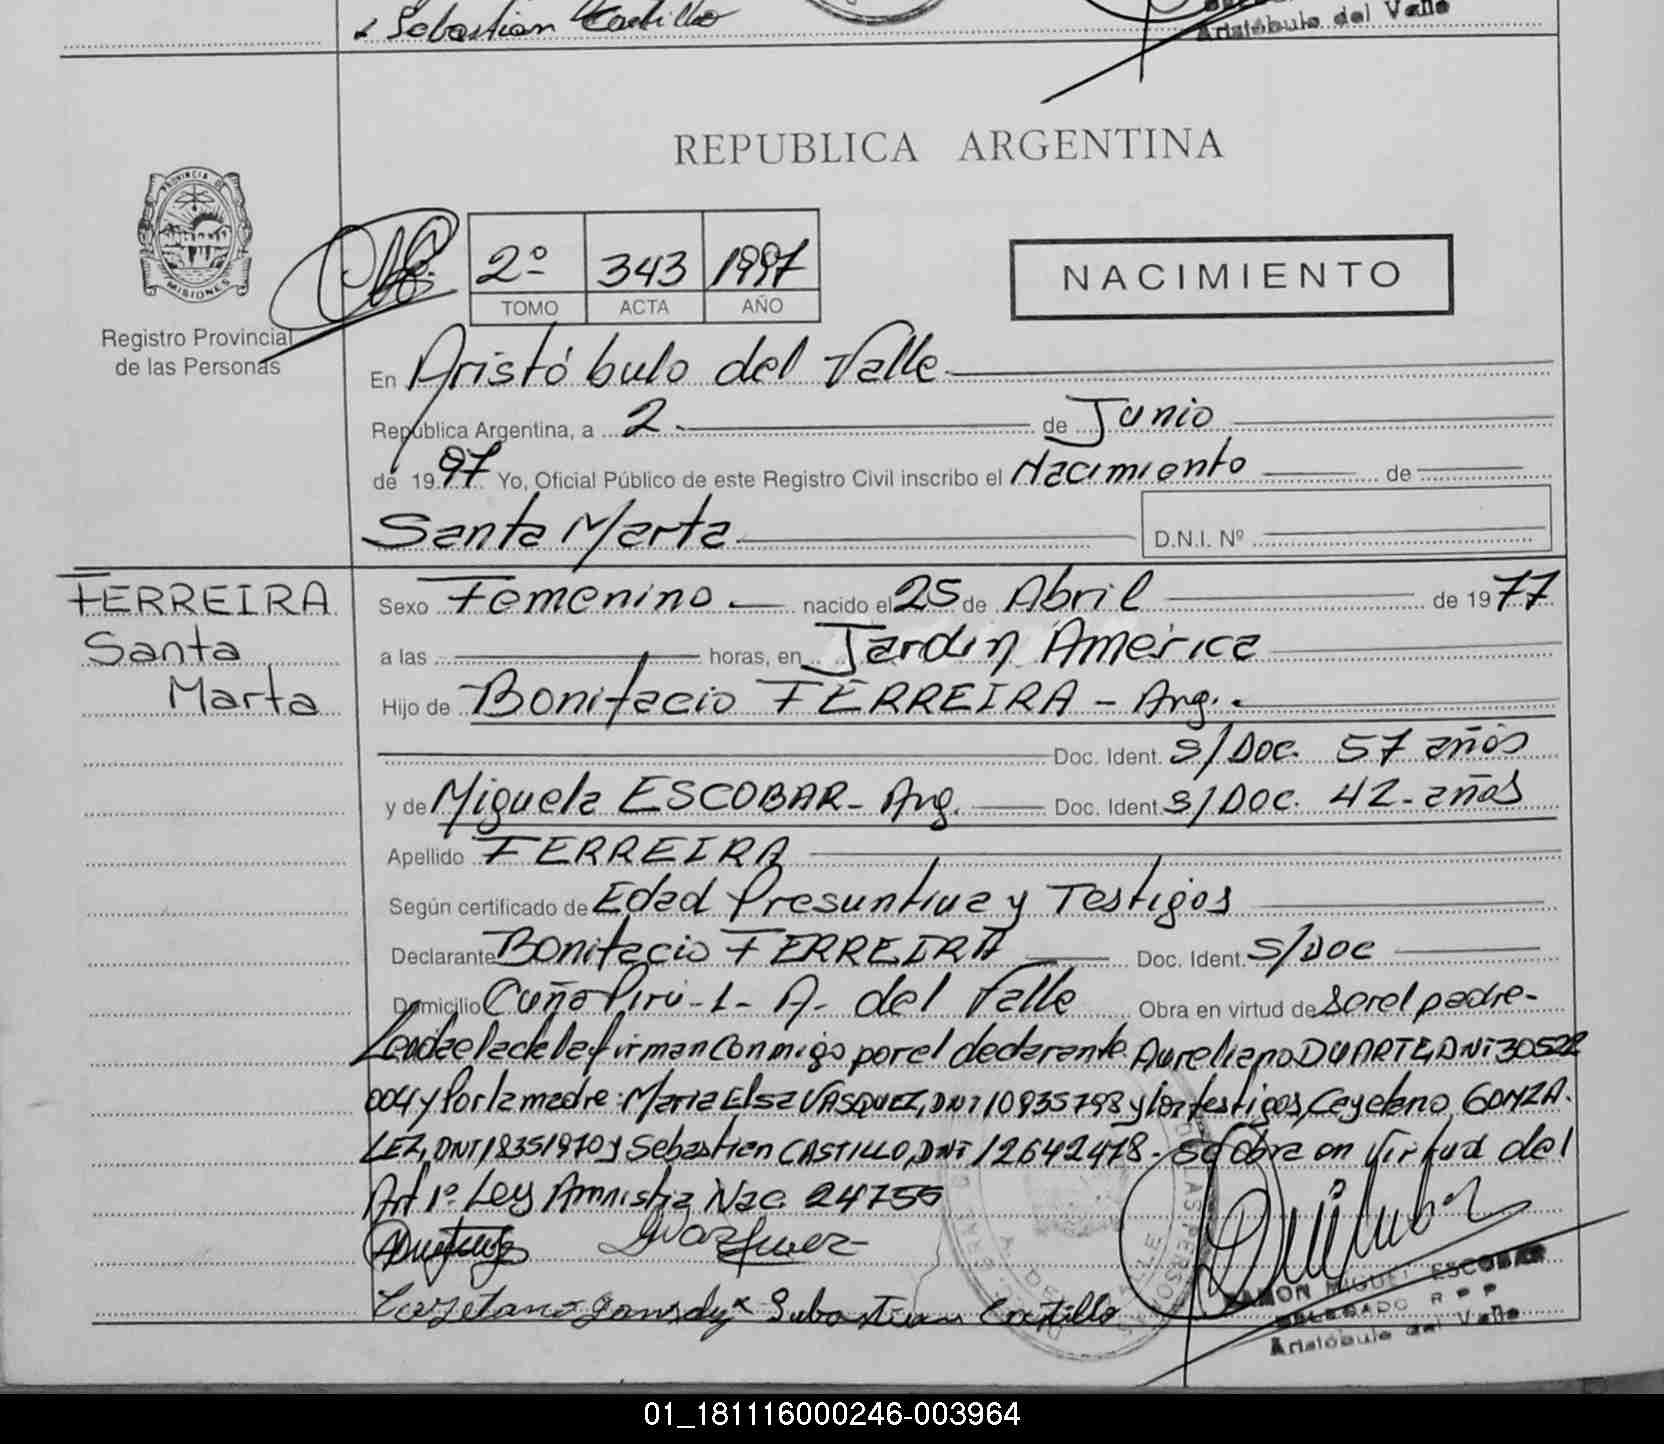 Sebastián Castillo
Aristóbulo del Valle
REPUBLICA ARGENTINA
PROVINCIA DE
MISIONES
Registro Provincial
de las Personas
2º 343 1997
TOMO ACTA AÑO
NACIMIENTO
En Aristóbulo del Valle
República Argentina, a 2 de Junio
de 1997 Yo, Oficial Público de este Registro Civil inscribo el Nacimiento de
Santa Marta D.N.I. Nº
FERREIRA
Santa
Marta
Sexo Femenino nacido el 25 de Abril de 1977
a las horas, en Jardin América
Hijo de Bonifacio FERREIRA - Arg.
Doc. Ident. S/Doc. 57 años
y de Miguela ESCOBAR - Arg. Doc. Ident. S/Doc. 42 - años
Apellido FERREIRA
Según certificado de Edad Presuntiva y Testigos
Declarante Bonifacio FERREIRA Doc. Ident. S/Doc
Domicilio Cuña Pirú - 1 - A. del Valle Obra en virtud de ser el padre -
Leida el acta la firman conmigo por el declarante: Aureliano DUARTE, DNI 30522
004 y Por la madre: Maria Elsa VASQUEZ, DNI 10935798 y los testigos, Cayetano GONZA-
LEZ, DNI 18351970 y Sebastian CASTILLO, DNI 12642478 - Se Obra en Virtud del
Art 1º Ley Amnistia Nac. 24755
Vazquez
Cayetano Gonsalez x Sebastian Castillo
RAMON MIGUEL ESCOBAR
DELEGADO R P P
Aristóbulo del Valle
01_181116000246-003964